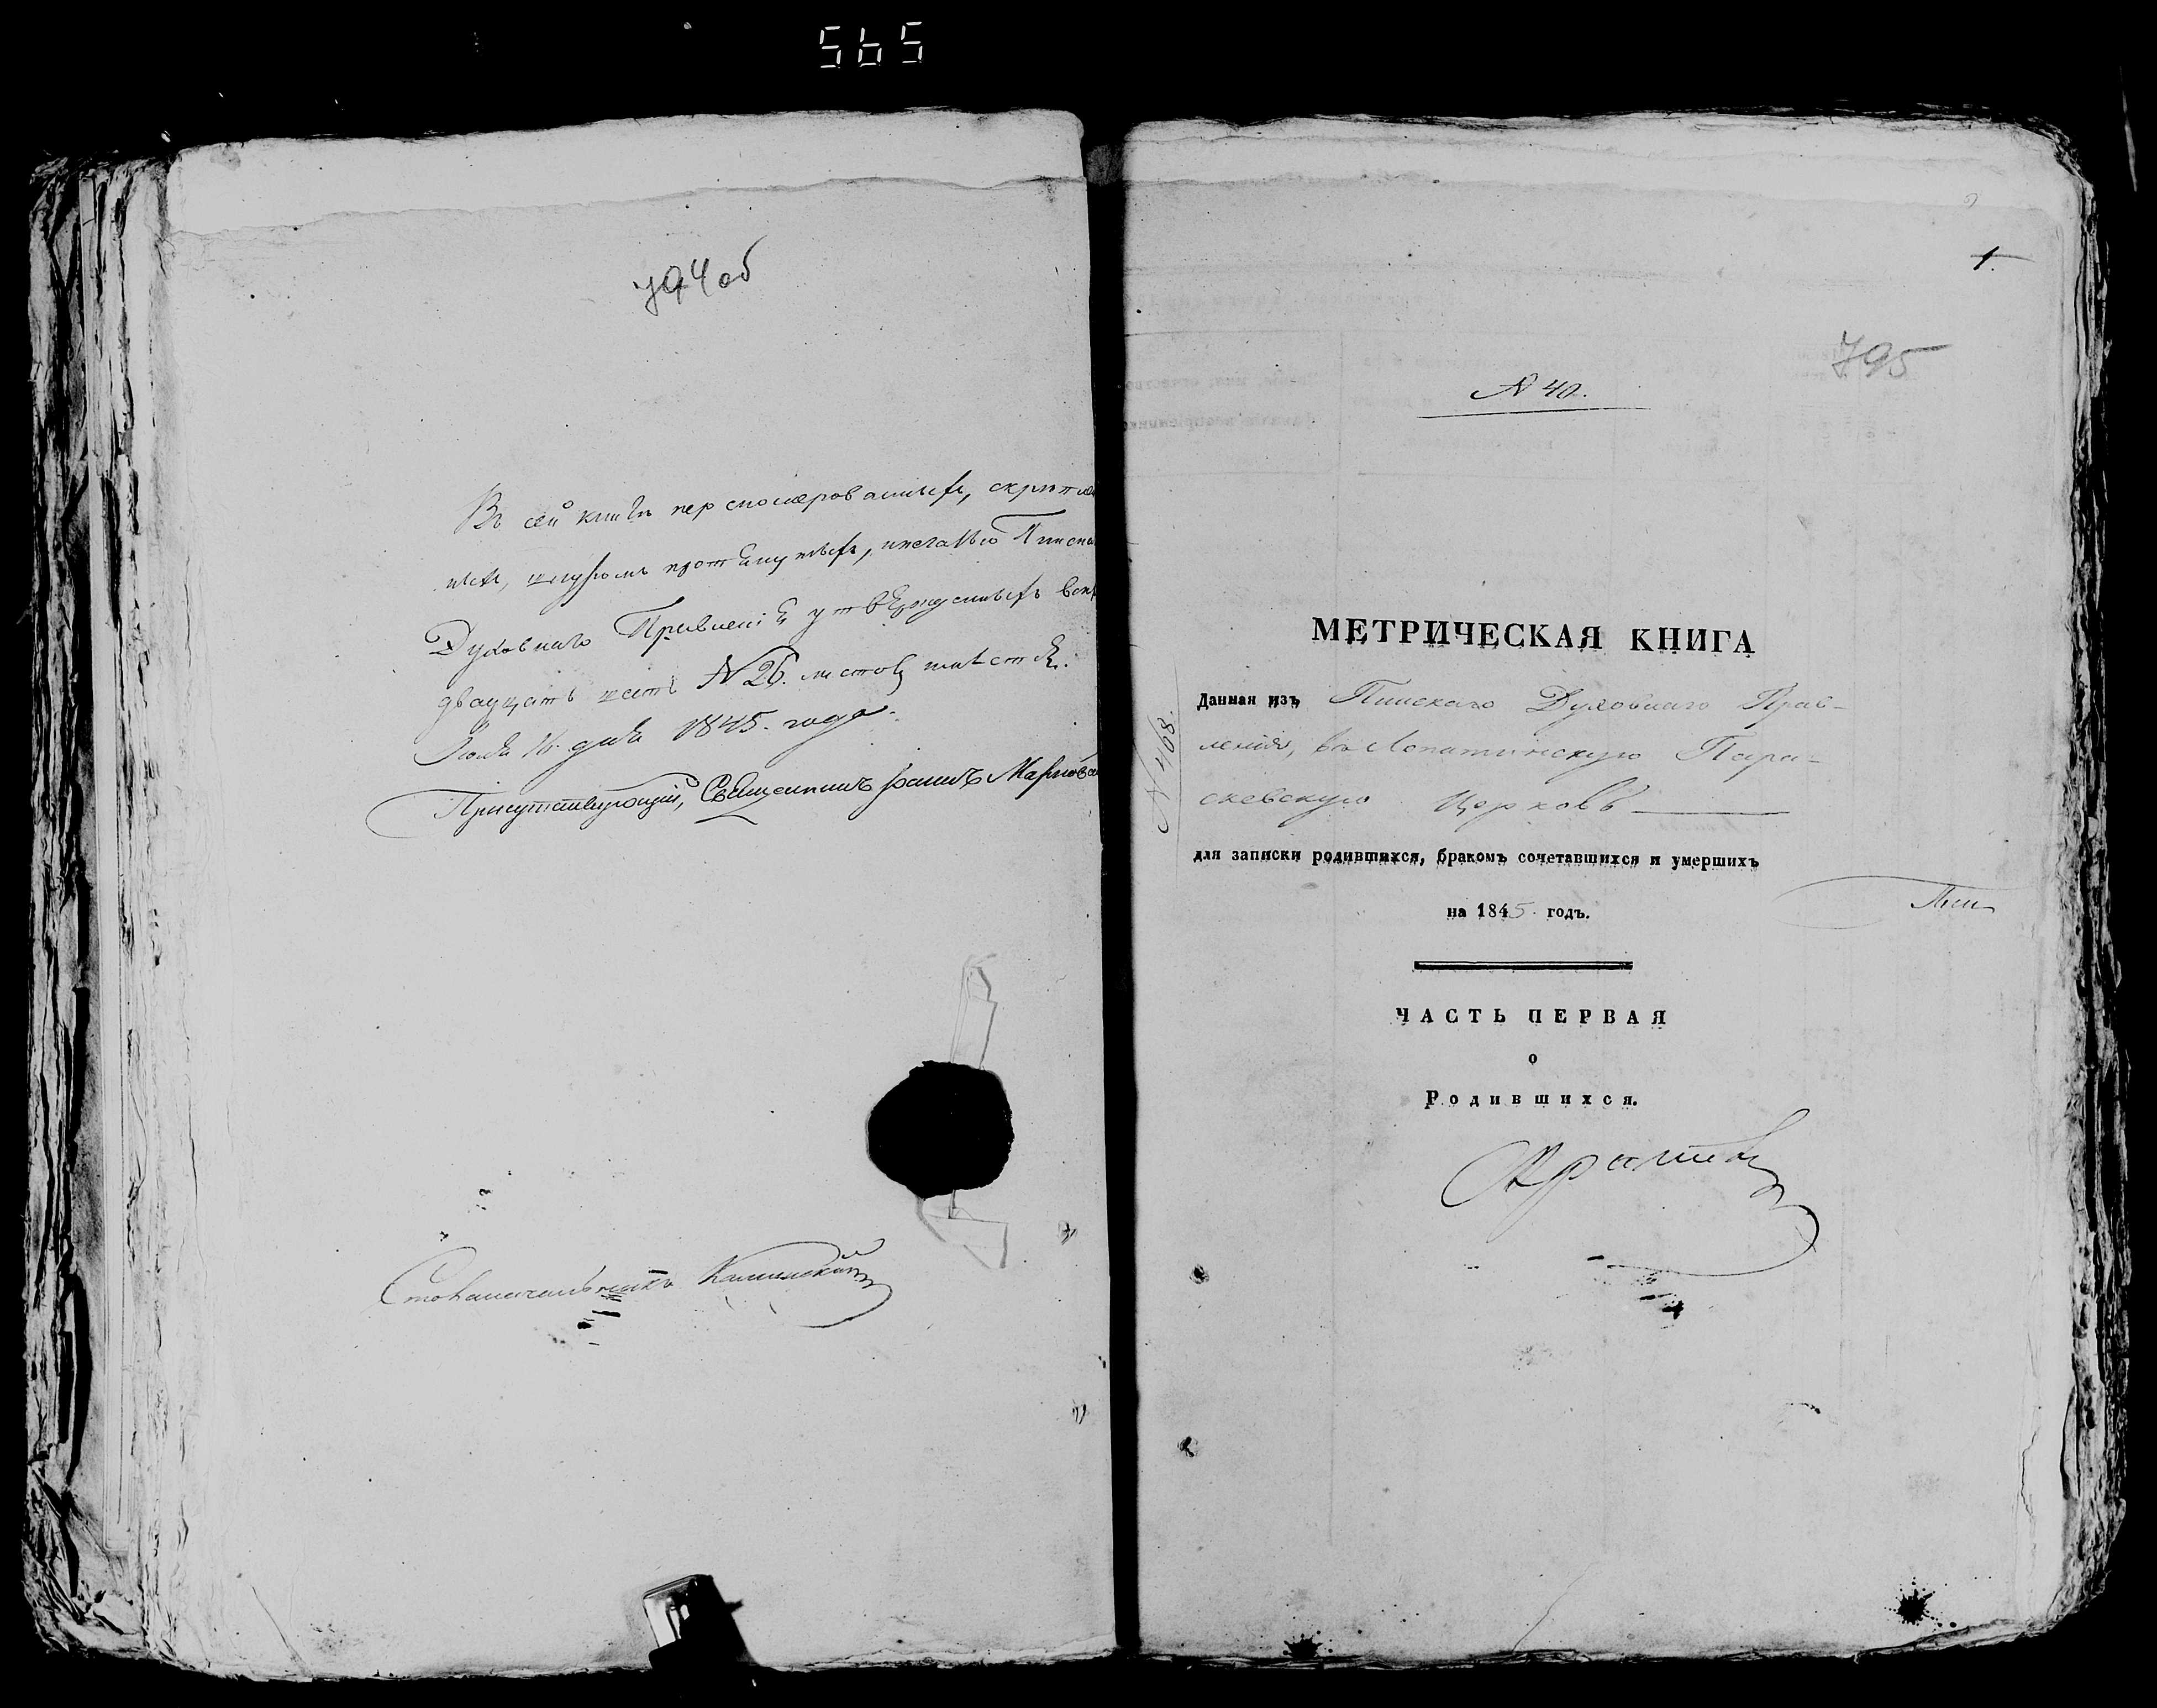 565
794 об
Въ сей книгѣ перенумерованныхъ, скрѣплен
ныхъ, шнуромъ протянутыхъ, печатью Пинска
Духовнаго Правленія утвержденныхъ всего
двадцать шесть №26. листовъ имѣется.
дня 1845. года.
Присутствующій, Священникъ Іоаннъ
Столоначальникъ Калинскій
1.
795
N 40.
МЕТРИЧЕСКАЯ КНИГА
Данная изъ Пинскаго Духовнаго Прав-
ленія, въ Лопатинскую Пара-
скевскую Церковь
N 468.
для записки родившихся, бракомъ сочетавшихся и умершихъ
на 1845. годъ.
Пин
ЧАСТЬ ПЕРВАЯ
о
Родившихся.